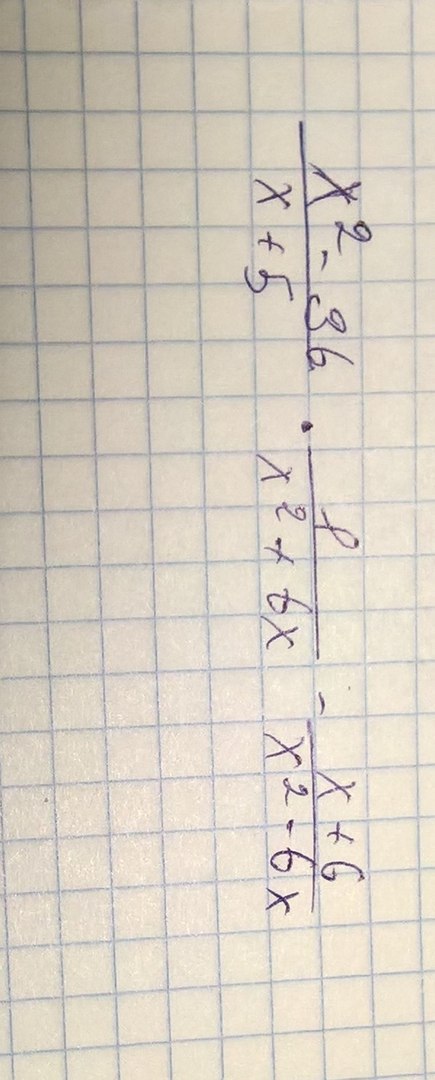 x² - 36 / x + 5 · 1 / x² + 6x - x + 6 / x² - 6x